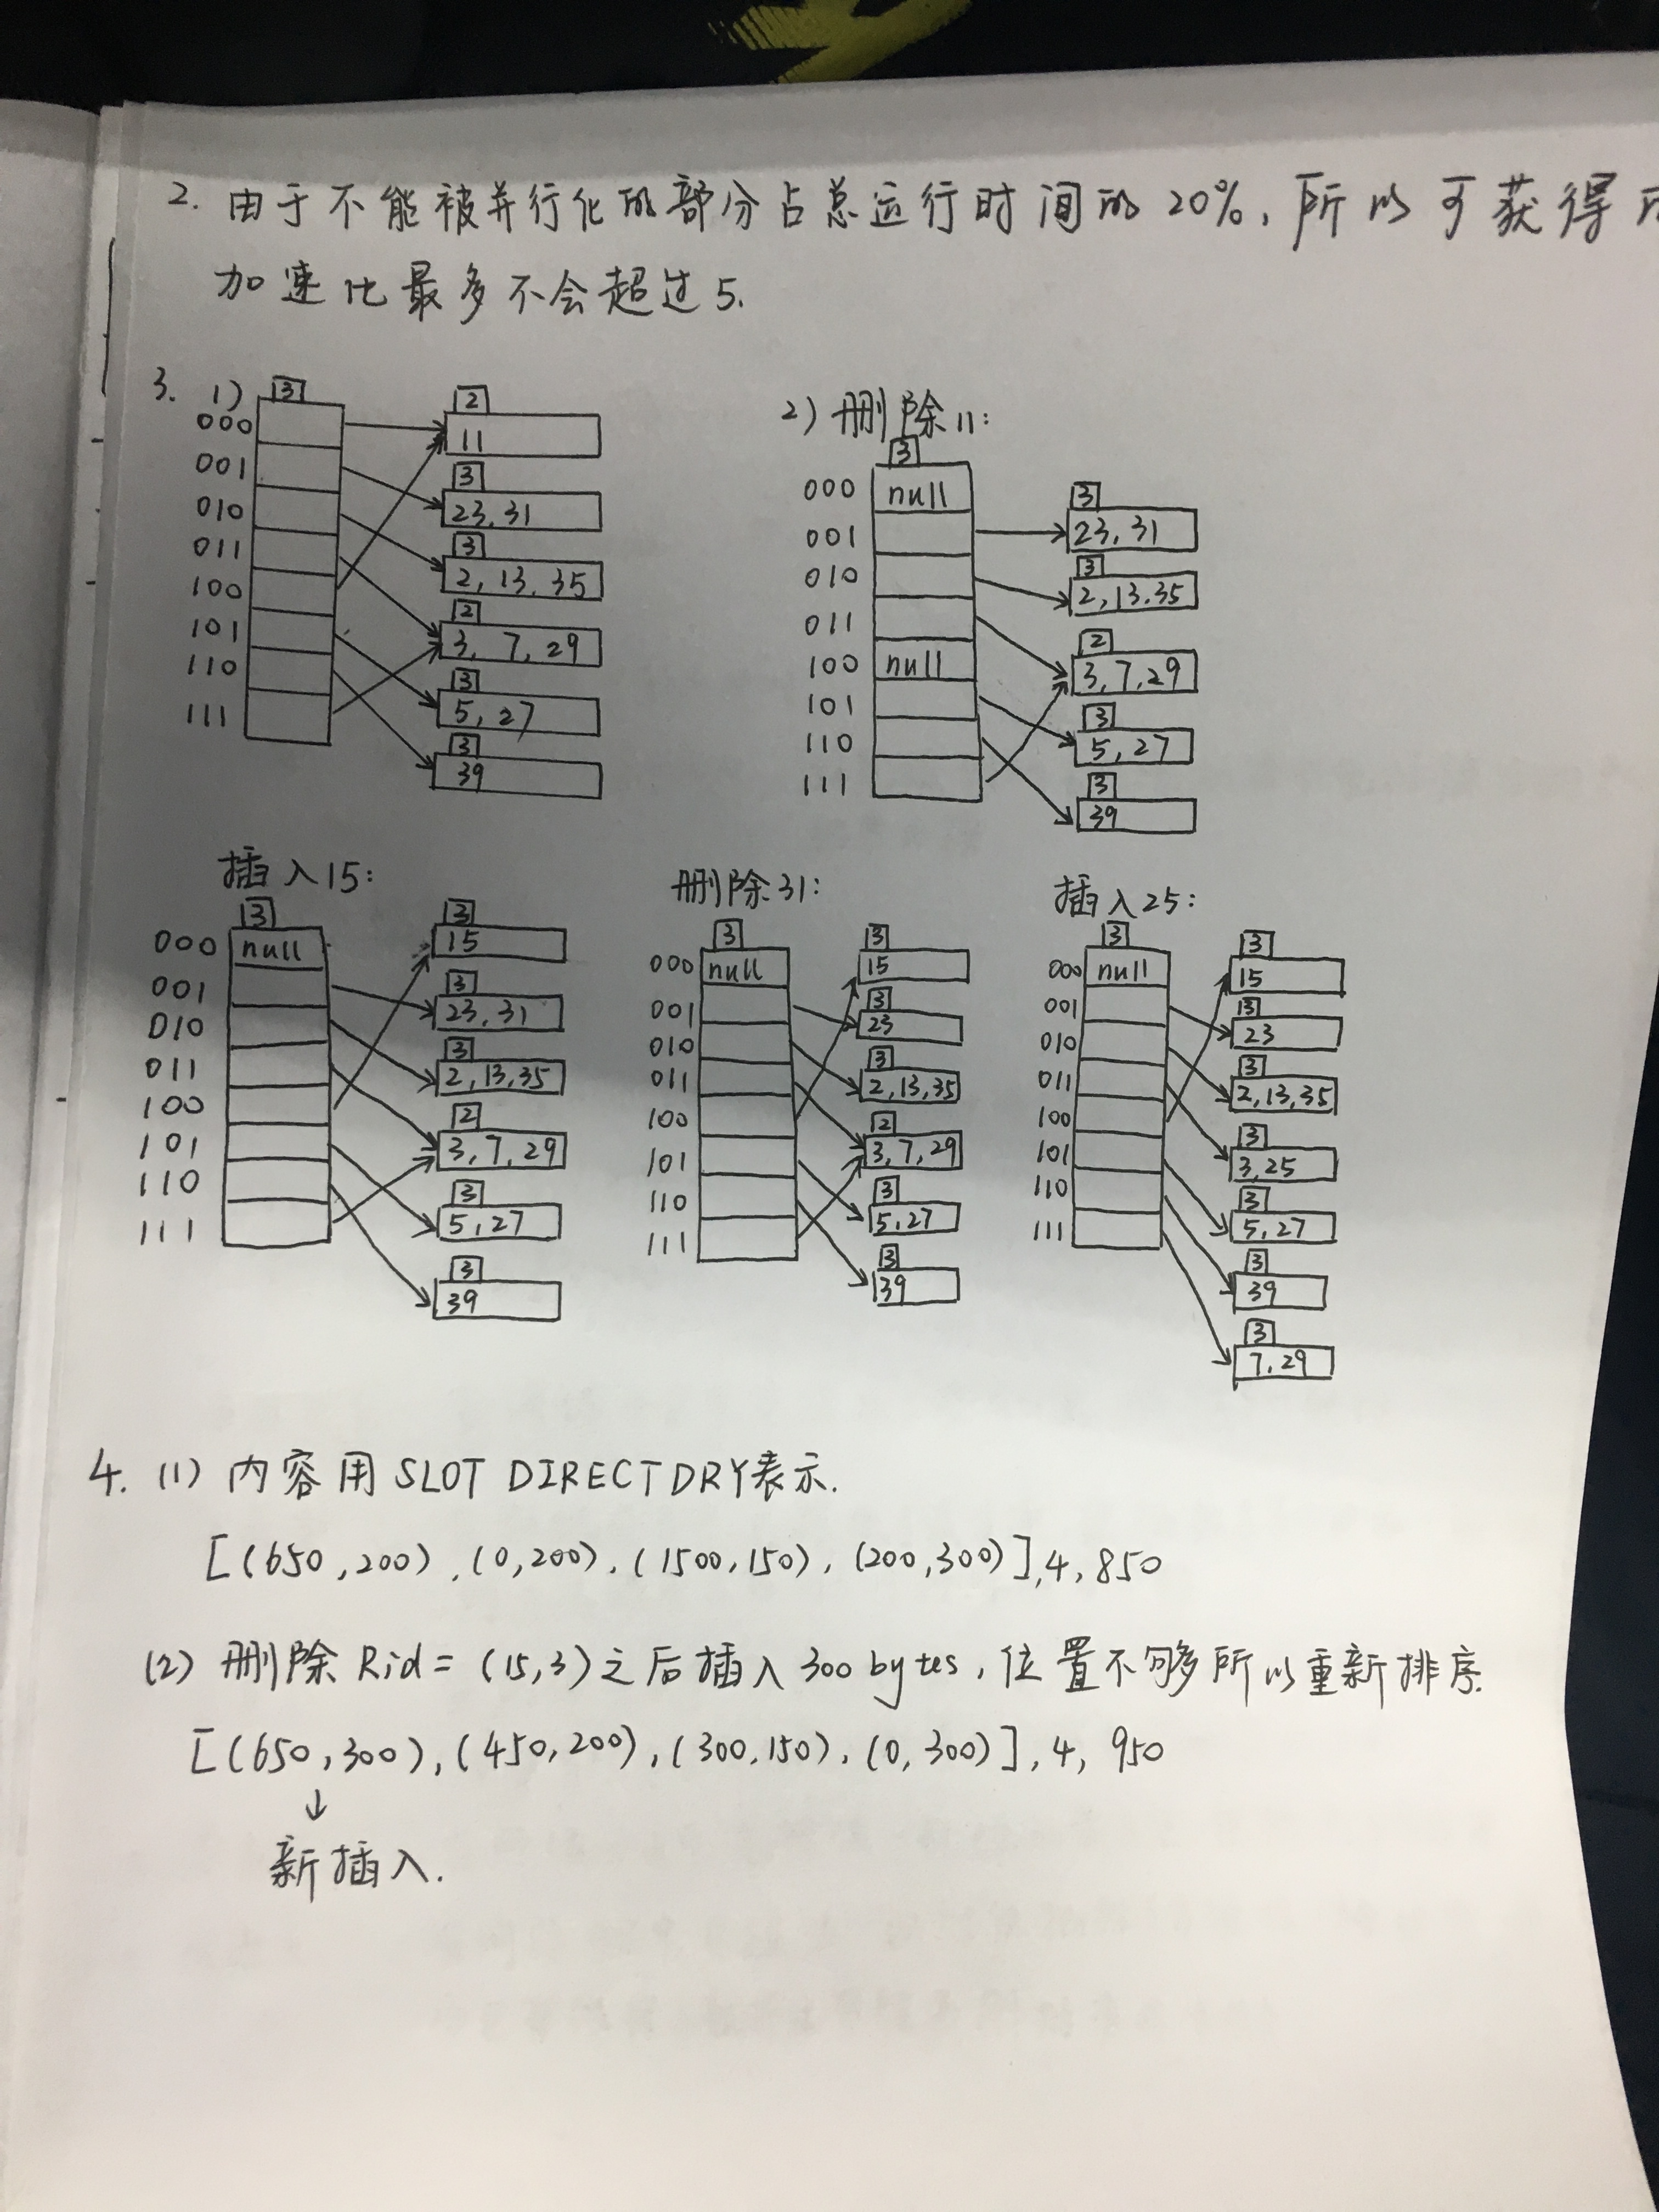 2. 由于不能被并行化的部分占总运行时间的20%,所以可获得
加速比最多不会超过5.
3. 1)
3
000
001
010
011
100
101
110
111
2
11
3
23,31
3
2,13,35
2
3,7,29
3
5,27
3
39
2) 删除11:
3
000 null
001
010
011
100 null
101
110
111
3
23,31
3
2,13,35
2
3,7,29
3
5,27
3
39
插入15:
3
000 null
001
010
011
100
101
110
111
3
15
3
23,31
3
2,13,35
2
3,7,29
3
5,27
3
39
删除31:
3
000 null
001
010
011
100
101
110
111
3
15
3
23
3
2,13,35
2
3,7,29
3
5,27
3
39
插入25:
3
000 null
001
010
011
100
101
110
111
3
15
3
23
3
2,13,35
3
3,25
3
5,27
3
39
3
7,29
4. (1) 内容用SLOT DIRECTDRY表示.
[(650,200),(0,200),(1500,150),(200,300)],4,850
(2) 删除Rid=(15,3)之后插入300bytes,位置不够所以重新排序.
[(650,300),(450,200),(300,150),(0,300)],4,950
↓
新插入.